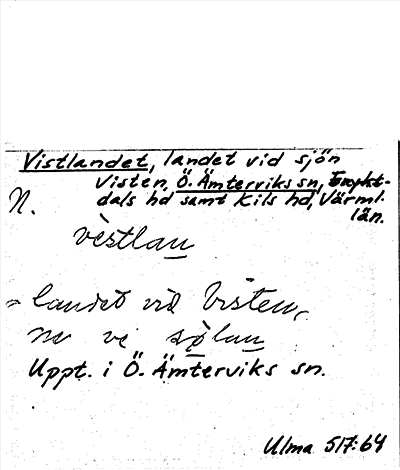 Vistlandet, landet vid sjön
Visten, Ö. Ämterviks sn, Frykt-
N. dals hd samt Kils hd, Värml.
län.
vèstlan
= landet vid Visten,
ve
Uppt. i Ö. Ämterviks sn.
Ulma 517:64